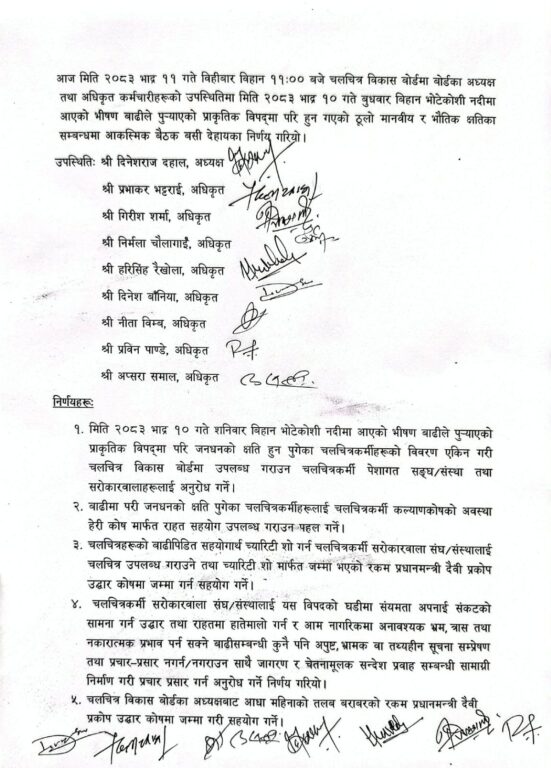 आज मिति २०८३ भाद्र ११ गते विहीबार विहान ११:०० बजे चलचित्र विकास बोर्डमा बोर्डका अध्यक्ष
तथा अधिकृत कर्मचारीहरूको उपस्थितिमा मिति २०८३ भाद्र १० गते बुधवार बिहान भोटेकोशी नदीमा
आएको भीषण बाढीले पुऱ्याएको प्राकृतिक विपद्मा परि हुन गएको ठूलो मानवीय र भौतिक क्षतिका
सम्बन्धमा आकस्मिक बैठक बसी देहायका निर्णय गरियो।
उपस्थितिः श्री दिनेशराज दहाल, अध्यक्ष
श्री प्रभाकर भट्टराई, अधिकृत
श्री गिरीश शर्मा, अधिकृत
श्री निर्मला चौलागाईं, अधिकृत
श्री हरिसिंह रैखोला, अधिकृत
श्री दिनेश बाँनिया, अधिकृत
श्री नीता विम्ब, अधिकृत
श्री प्रविन पाण्डे, अधिकृत
श्री अप्सरा समाल, अधिकृत
निर्णयहरूः
१. मिति २०८३ भाद्र १० गते शनिवार बिहान भोटेकोशी नदीमा आएको भीषण बाढीले पुऱ्याएको
प्राकृतिक विपद्मा परि जनधनको क्षति हुन पुगेका चलचित्रकर्मीहरूको विवरण एकिन गरी
चलचित्र विकास बोर्डमा उपलब्ध गराउन चलचित्रकर्मी पेशागत सङ्घ/संस्था तथा
सरोकारवालाहरूलाई अनुरोध गर्ने।
२. बाढीमा परी जनधनको क्षति पुगेका चलचित्रकर्मीहरूलाई चलचित्रकर्मी कल्याणकोषको अवस्था
हेरी कोष मार्फत राहत सहयोग उपलब्ध गराउन पहल गर्ने।
३. चलचित्रहरूको बाढीपिडित सहयोगार्थ च्यारिटी शो गर्न चलचित्रकर्मी सरोकारवाला संघ/संस्थालाई
चलचित्र उपलब्ध गराउने तथा च्यारिटी शो मार्फत जम्मा भएको रकम प्रधानमन्त्री दैवी प्रकोप
उद्धार कोषमा जम्मा गर्न सहयोग गर्ने।
४. चलचित्रकर्मी सरोकारवाला संघ/संस्थालाई यस विपदको घडीमा संयमता अपनाई संकटको
सामना गर्न उद्धार तथा राहतमा हातेमालो गर्न र आम नागरिकमा अनावश्यक भ्रम, त्रास तथा
नकारात्मक प्रभाव पर्न सक्ने बाढीसम्बन्धी कुनै पनि अपुष्ट, भ्रामक वा तथ्यहीन सूचना सम्प्रेषण
तथा प्रचार-प्रसार नगर्न/नगराउन साथै जागरण र चेतनामूलक सन्देश प्रवाह सम्बन्धी सामाग्री
निर्माण गरी प्रचार प्रसार गर्न अनुरोध गर्ने निर्णय गरियो।
५. चलचित्र विकास बोर्डका अध्यक्षबाट आधा महिनाको तलब बराबरको रकम प्रधानमन्त्री दैवी
प्रकोप उद्धार कोषमा जम्मा गरी सहयोग गर्ने।